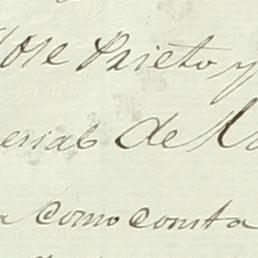 Jose Prieto y
erial de
a como consta